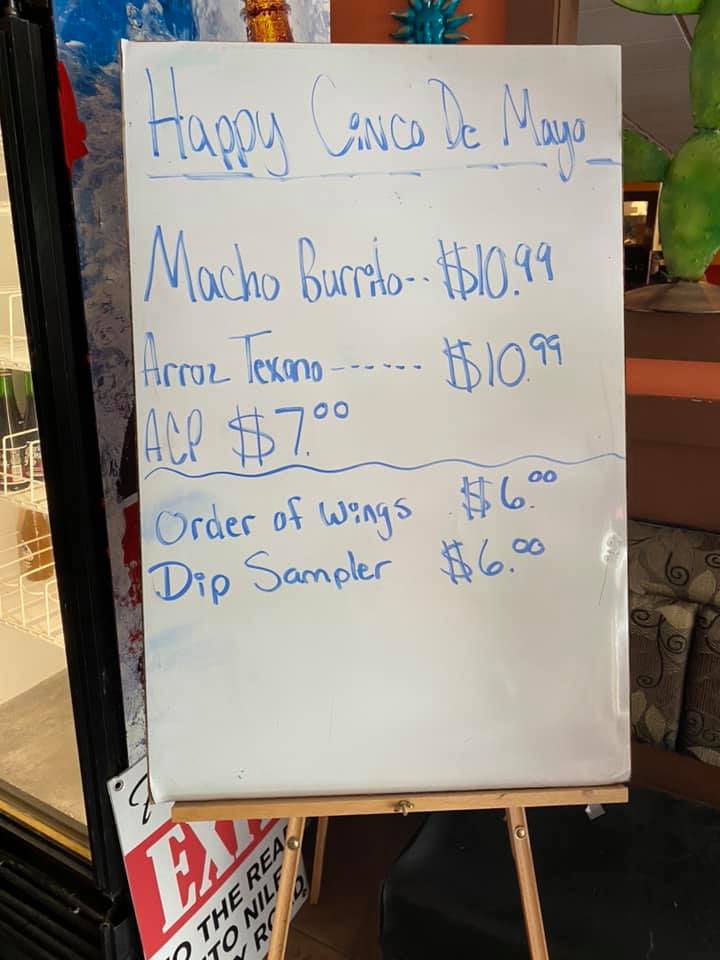 Happy Cinco De Mayo
Macho Burrito-- $10.99
Arroz Texano ------ $10.99
ACP $7.00
Order of Wings $6.00
Dip Sampler $6.00
TO THE REA
TO NILE